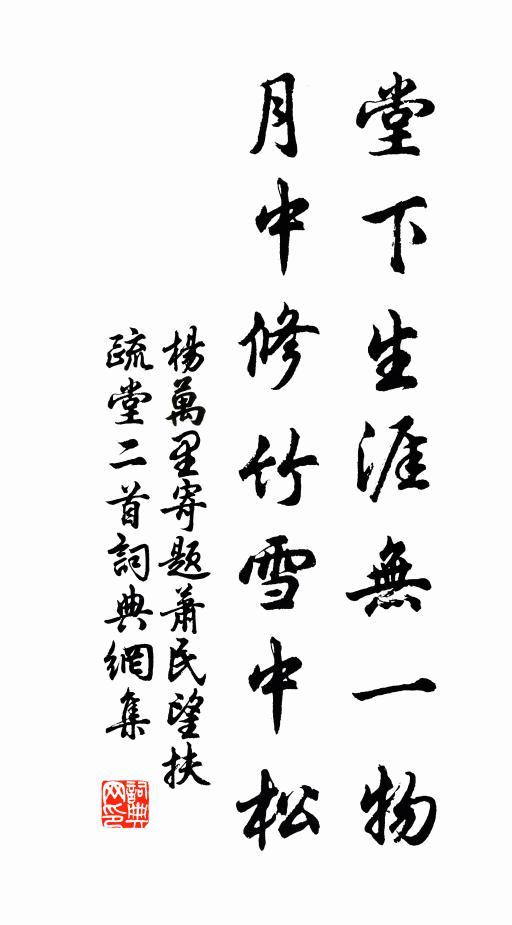 堂下生涯無一物
月中修竹雪中松
楊萬里寄題蕭民望扶
疏堂二首詞典網集
詞典
网印